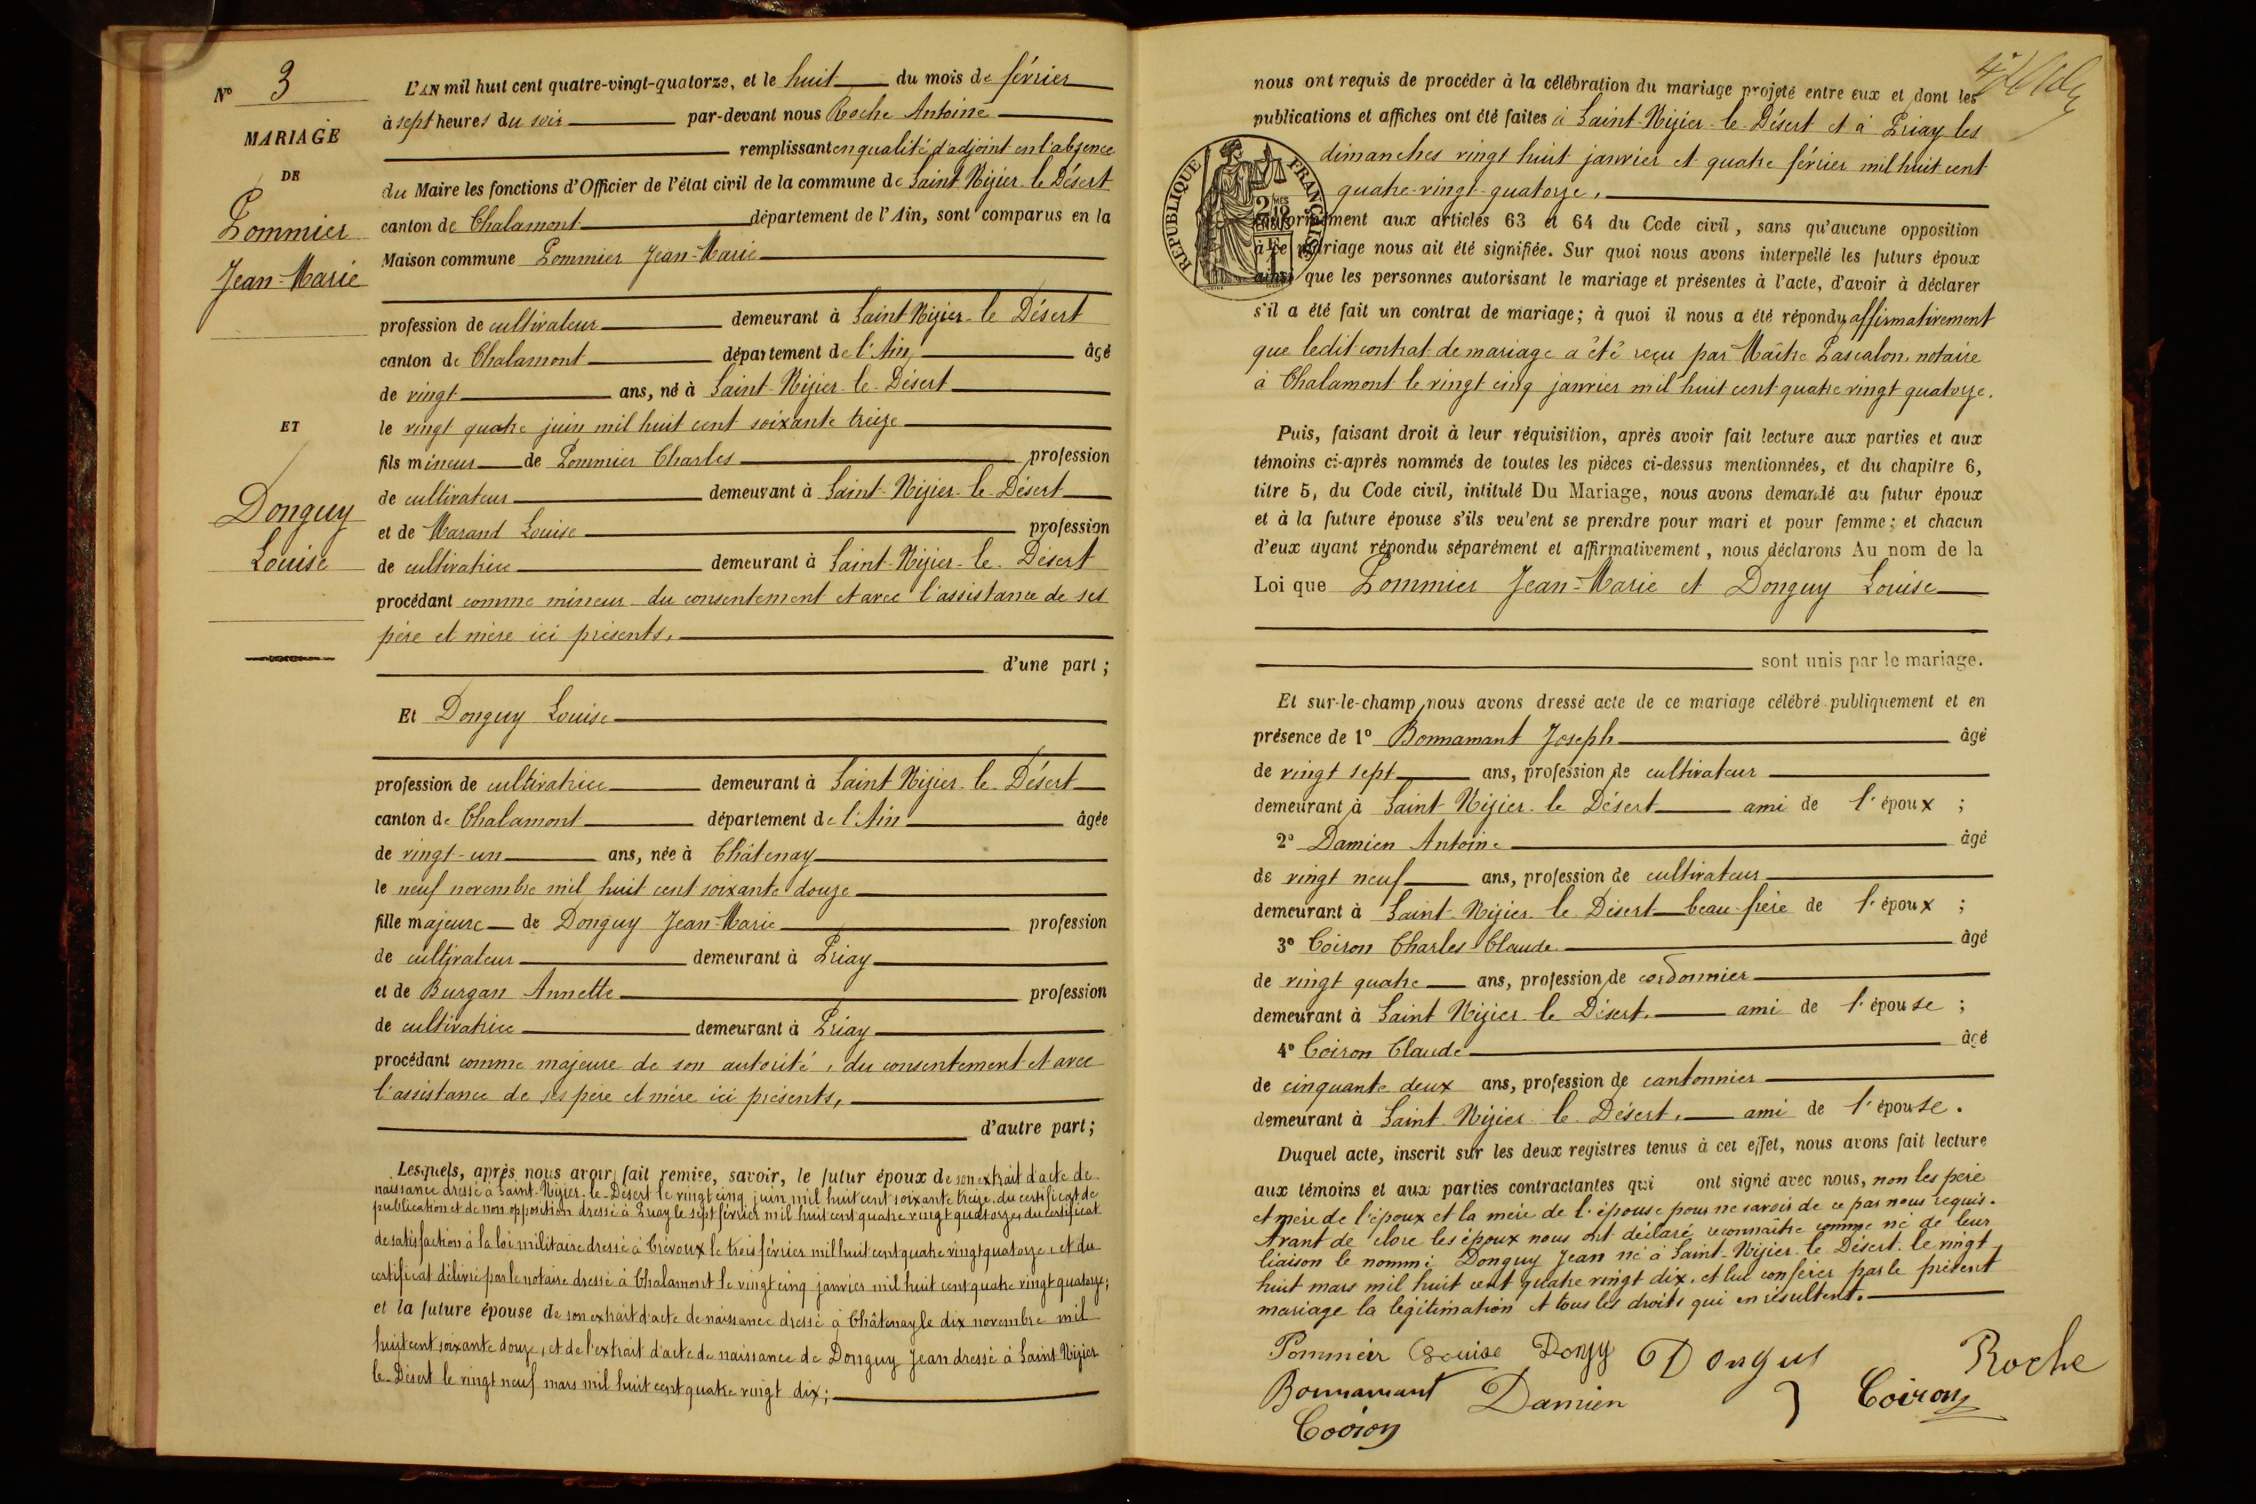 N° 3
MARIAGE
DE
Pommier
Jean-Marie
ET
Donguy
Louise
L'AN mil huit cent quatre-vingt-quatorze, et le huit du mois de février
à sept heures du soir par-devant nous Roche Antoine
remplissant en qualité d'adjoint en l'absence
du Maire les fonctions d'Officier de l'état civil de la commune de Saint Nizier le Désert
canton de Chalamont département de l'Ain, sont comparus en la
Maison commune Pommier Jean-Marie
profession de cultivateur demeurant à Saint Nizier-le Désert
canton de Chalamont département de l'Ain âgé
de vingt ans, né à Saint-Nizier-le-Désert
le vingt quatre juin mil huit cent soixante treize
fils mineur de Pommier Charles profession
de cultivateur demeurant à Saint-Nizier-le-Désert
et de Marand Louise profession
de cultivatrice demeurant à Saint-Nizier-le-Désert
procédant comme mineur du consentement et avec l'assistance de ses
père et mère ici présents,
d'une part ;
Et Donguy Louise
profession de cultivatrice demeurant à Saint Nizier-le-Désert
canton de Chalamont département de l'Ain âgée
de vingt-un ans, née à Châtenay
le neuf novembre mil huit cent soixante douze
fille majeure de Donguy Jean-Marie profession
de cultivateur demeurant à Priay
et de Burgan Annette profession
de cultivatrice demeurant à Priay
procédant comme majeure de son autorité, du consentement et avec
l'assistance de ses père et mère ici présents,
d'autre part ;
Lesquels, après nous avoir fait remise, savoir, le futur époux de son extrait d'acte de
naissance dressé à Saint-Nizier-le-Désert le vingt cinq juin mil huit cent soixante treize, du certificat de
publication et de non opposition dressé à Priay le sept février mil huit cent quatre vingt quatorze, du certificat
de satisfaction à la loi militaire dressé à Trévoux le trois février mil huit cent quatre vingt quatorze, et du
certificat délivré par le notaire dressé à Chalamont le vingt cinq janvier mil huit cent quatre vingt quatorze ;
et la future épouse de son extrait d'acte de naissance dressé à Châtenay le dix novembre mil
huit cent soixante douze, et de l'extrait d'acte de naissance de Donguy Jean dressé à Saint Nizier
le-Désert le vingt neuf mars mil huit cent quatre vingt dix ;
nous ont requis de procéder à la célébration du mariage projeté entre eux et dont les
publications et affiches ont été faites à Saint-Nizier-le-Désert et à Priay les
dimanches vingt huit janvier et quatre février mil huit cent
quatre-vingt-quatorze,
REPUBLIQUE FRANÇAISE
conformément aux articles 63 et 64 du Code civil, sans qu'aucune opposition
à ce mariage nous ait été signifiée. Sur quoi nous avons interpellé les futurs époux
ainsi que les personnes autorisant le mariage et présentes à l'acte, d'avoir à déclarer
s'il a été fait un contrat de mariage ; à quoi il nous a été répondu affirmativement
que ledit contrat de mariage a été reçu par Maître Pascalon, notaire
à Chalamont le vingt cinq janvier mil huit cent quatre vingt quatorze.
Puis, faisant droit à leur réquisition, après avoir fait lecture aux parties et aux
témoins ci-après nommés de toutes les pièces ci-dessus mentionnées, et du chapitre 6,
titre 5, du Code civil, intitulé Du Mariage, nous avons demandé au futur époux
et à la future épouse s'ils veulent se prendre pour mari et pour femme ; et chacun
d'eux ayant répondu séparément et affirmativement, nous déclarons Au nom de la
Loi que Pommier Jean-Marie et Donguy Louise
sont unis par le mariage.
Et sur-le-champ nous avons dressé acte de ce mariage célébré publiquement et en
présence de 1° Bonnamant Joseph âgé
de vingt sept ans, profession de cultivateur
demeurant à Saint Nizier le Désert ami de l'époux ;
2° Damien Antoine âgé
de vingt neuf ans, profession de cultivateur
demeurant à Saint-Nizier le Désert beau-frère de l'époux ;
3° Coiron Charles Claude âgé
de vingt quatre ans, profession de cordonnier
demeurant à Saint Nizier le Désert, ami de l'épouse ;
4° Coiron Claude âgé
de cinquante deux ans, profession de cantonnier
demeurant à Saint Nizier le Désert, ami de l'épouse.
Duquel acte, inscrit sur les deux registres tenus à cet effet, nous avons fait lecture
aux témoins et aux parties contractantes qui ont signé avec nous, non les père
et mère de l'époux et la mère de l'épouse pour ne savoir de ce par nous requis.
Avant de clore les époux nous ont déclaré reconnaître comme né de leur
liaison le nommé Donguy Jean né à Saint-Nizier le Désert le vingt
huit mars mil huit cent quatre vingt dix, et lui conférer par le présent
mariage la légitimation et tous les droits qui en résultent.
Pommier Louise Dongy Donguy Roche
Bonnamant Damien Coiron
Coiron